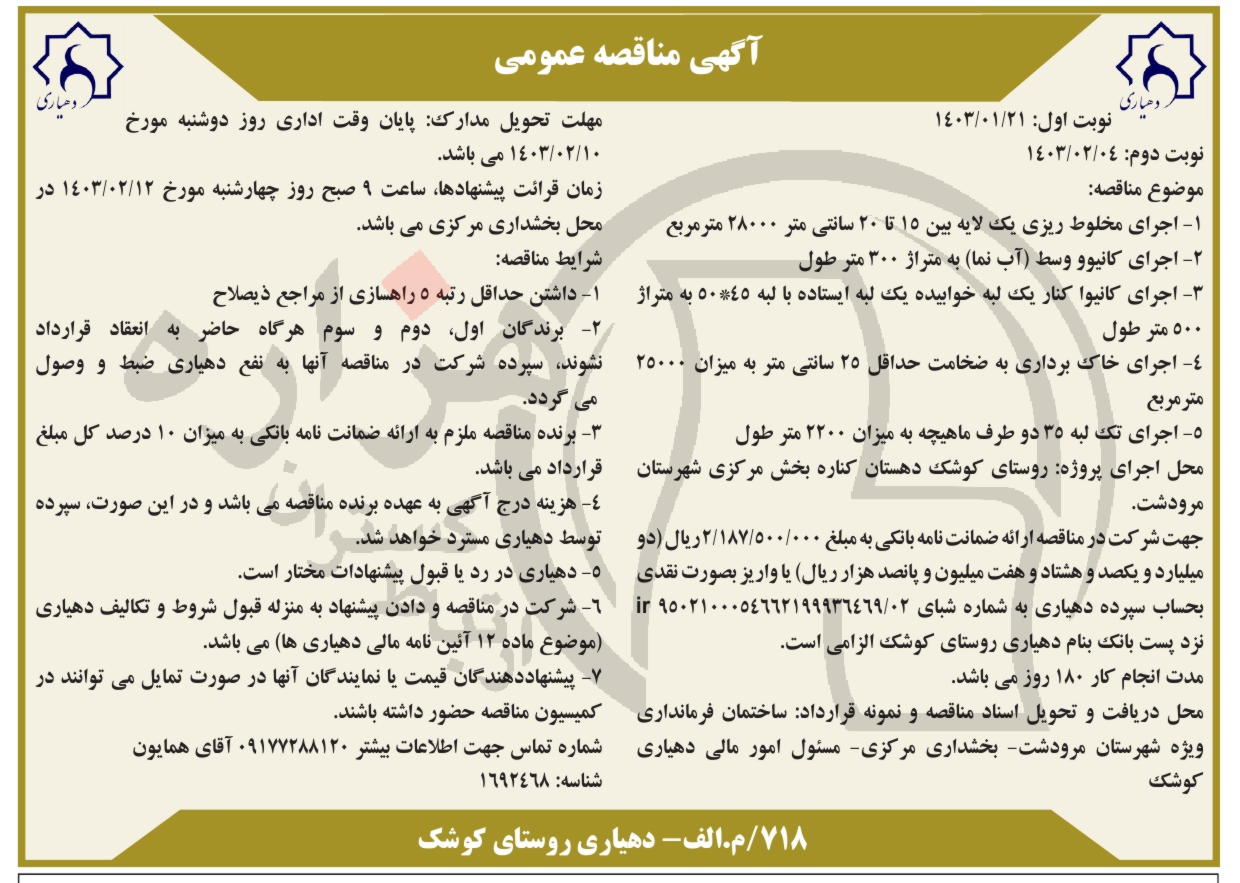 آگهی مناقصه عمومی
دهیاری
دهیاری
نوبت اول: ۱٤۰۳/۰۱/۲۱
نوبت دوم: ۱٤۰۳/۰۲/۰٤
موضوع مناقصه:
۱- اجرای مخلوط ریزی یک لایه بین ۱٥ تا ۲۰ سانتی متر ۲۸۰۰۰ مترمربع
۲- اجرای کانیوو وسط (آب نما) به متراژ ۳۰۰ متر طول
۳- اجرای کانیوا کنار یک لبه خوابیده یک لبه ایستاده با لبه ٤٥*٥۰ به متراژ
٥۰۰ متر طول
٤- اجرای خاک برداری به ضخامت حداقل ۲٥ سانتی متر به میزان ۲٥۰۰۰
مترمربع
٥- اجرای تک لبه ۳٥ دو طرف ماهیچه به میزان ۲۲۰۰ متر طول
محل اجرای پروژه: روستای کوشک دهستان کناره بخش مرکزی شهرستان
مرودشت.
جهت شرکت در مناقصه ارائه ضمانت نامه بانکی به مبلغ ۲/۱۸۷/٥۰۰/۰۰۰ریال (دو
میلیارد و یکصد و هشتاد و هفت میلیون و پانصد هزار ریال) یا واریز بصورت نقدی
بحساب سپرده دهیاری به شماره شبای ir ۹٥۰۲۱۰۰۰٥٤٦٦۲۱۹۹۹۳٦٤٦۹/۰۲
نزد پست بانک بنام دهیاری روستای کوشک الزامی است.
مدت انجام کار ۱۸۰ روز می باشد.
محل دریافت و تحویل اسناد مناقصه و نمونه قرارداد: ساختمان فرمانداری
ویژه شهرستان مرودشت- بخشداری مرکزی- مسئول امور مالی دهیاری
کوشک
مهلت تحویل مدارک: پایان وقت اداری روز دوشنبه مورخ
۱٤۰۳/۰۲/۱۰ می باشد.
زمان قرائت پیشنهادها، ساعت ۹ صبح روز چهارشنبه مورخ ۱٤۰۳/۰۲/۱۲ در
محل بخشداری مرکزی می باشد.
شرایط مناقصه:
۱- داشتن حداقل رتبه ٥ راهسازی از مراجع ذیصلاح
۲- برندگان اول، دوم و سوم هرگاه حاضر به انعقاد قرارداد
نشوند، سپرده شرکت در مناقصه آنها به نفع دهیاری ضبط و وصول
می گردد.
۳- برنده مناقصه ملزم به ارائه ضمانت نامه بانکی به میزان ۱۰ درصد کل مبلغ
قرارداد می باشد.
٤- هزینه درج آگهی به عهده برنده مناقصه می باشد و در این صورت، سپرده
توسط دهیاری مسترد خواهد شد.
٥- دهیاری در رد یا قبول پیشنهادات مختار است.
٦- شرکت در مناقصه و دادن پیشنهاد به منزله قبول شروط و تکالیف دهیاری
(موضوع ماده ۱۲ آئین نامه مالی دهیاری ها) می باشد.
۷- پیشنهاددهندگان قیمت یا نمایندگان آنها در صورت تمایل می توانند در
کمیسیون مناقصه حضور داشته باشند.
شماره تماس جهت اطلاعات بیشتر ۰۹۱۷۷۲۸۸۱۲۰ آقای همایون
شناسه: ۱٦۹۲٤٦۸
هزاره
گستران
ارتباط
۷۱۸/م.الف- دهیاری روستای کوشک